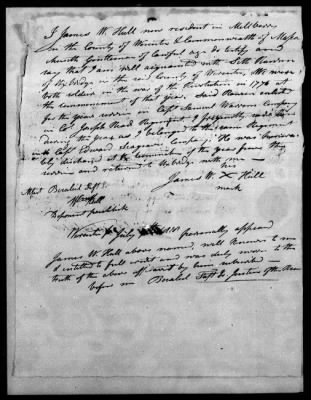 I James W. Hall now resident in Millbury
in the County of Worcester & Commonwealth of Massa
chusetts Gentleman of Lawful age do testify and
say that I am well acquainted with Seth Rawson
of Uxbridge in the said County of Worcester, We were
both soldiers in the war of the Revolution in 1776 at
the commencement of that year, Said Rawson enlisted
for one year in Capt Samuel Warren Company
in Col Joseph Read Regiment I frequently saw him
during the year as I belonged to the same Regiment
in Capt Edward Seagrave Company. He was
honorably discharged at the termination of the year from the
service and returned to Uxbridge with me
his
James W. X Hall
mark
Attest Bezaleel Taft Jr
Hall
Worcester ss July personally appeared
James W. Hall above named, well known to me
& intitled to full credit and was duly sworn to the
truth of the above affidavit by him subscribed
before me Bezaleel Taft Jr, Justice of the Peace